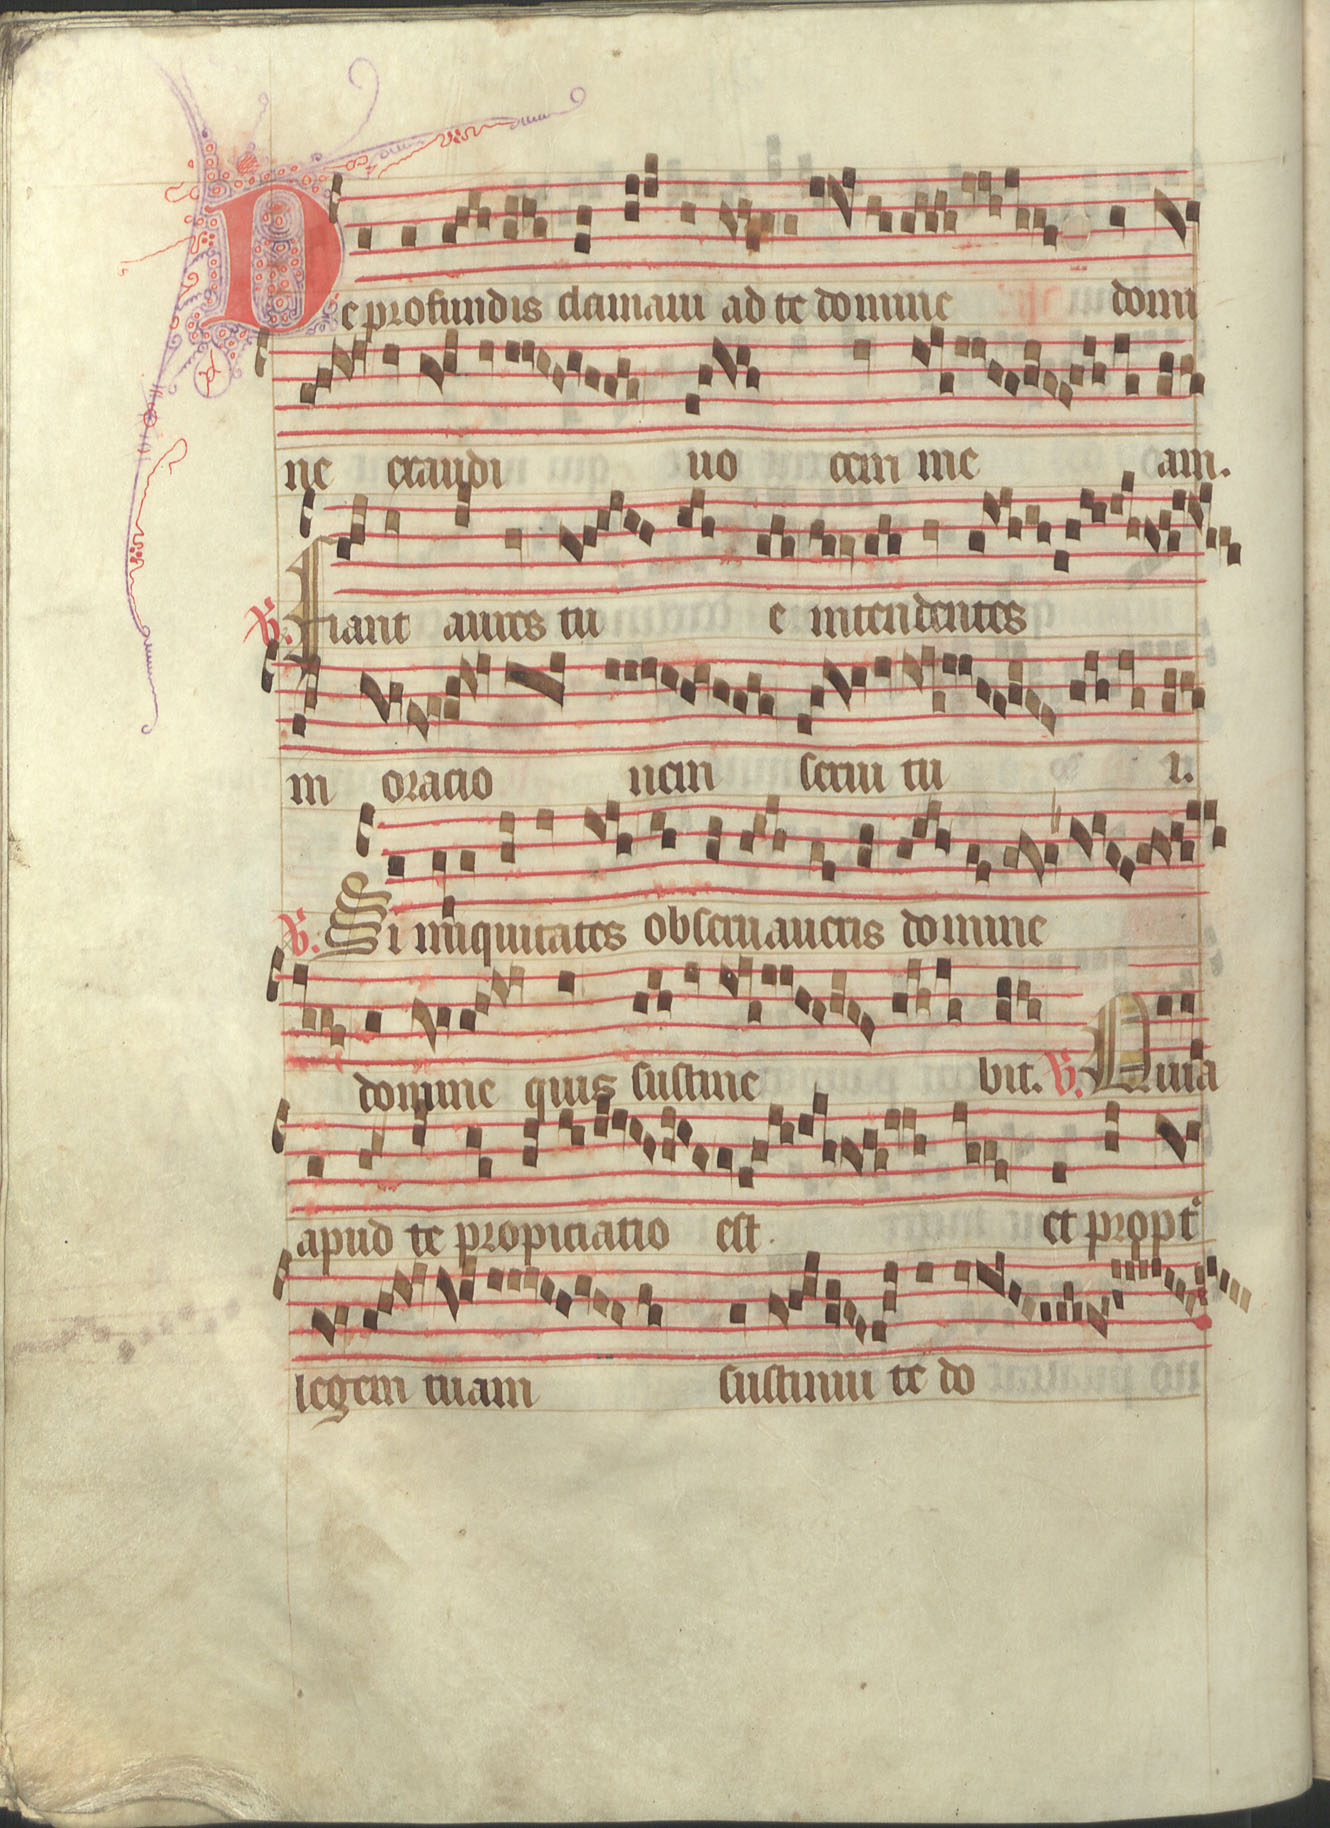 De profundis clamaui ad te domine domi
ne exaudi uo cem me am.
V. Fiant aures tu e intendentes
in oracio nem serui tu i.
V. Si iniquitates obseruaueris domine
domine quis sustine bit. V. Quia
apud te propiciatio est. et propt
legem tuam sustinui te do